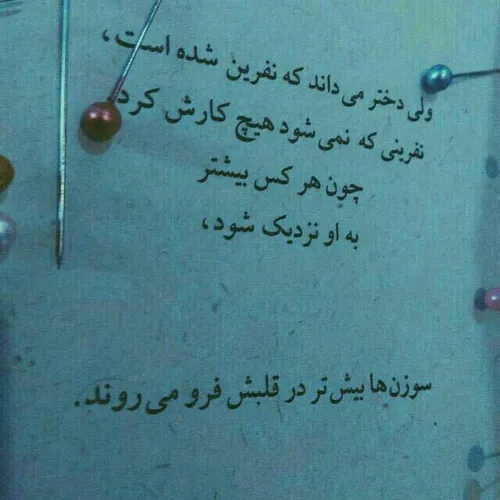 ولی دختر می داند که نفرین شده است،
نفرینی که نمی شود هیچ کارش کرد
چون هر کس بیشتر
به او نزدیک شود،
سوزن‌ها بیش‌تر در قلبش فرو می روند.